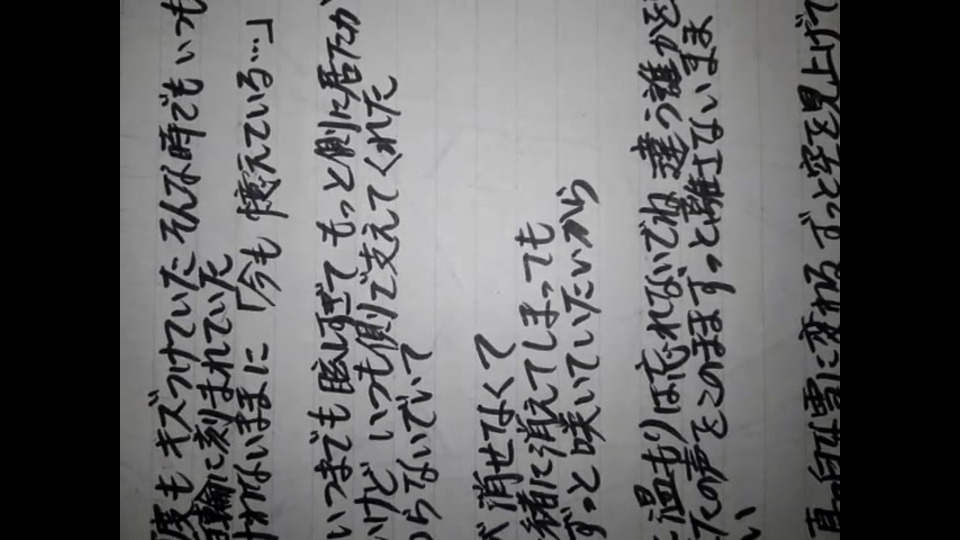 度も キズつけていた そんな時でも いつも
輪に刻まれていた
ないままに 「今も 憶えている…」
いつまでも 眩しすぎて もっと側に居たか
いけど いつも側で支えてくれた
わらないでいて
が 消せなくて
緒に消えてしまっても
ずっと咲いていたいから
温もりは忘れないでね
たの声を このままずっと離さないまま
い
雪に変え ずっと空を見上げて